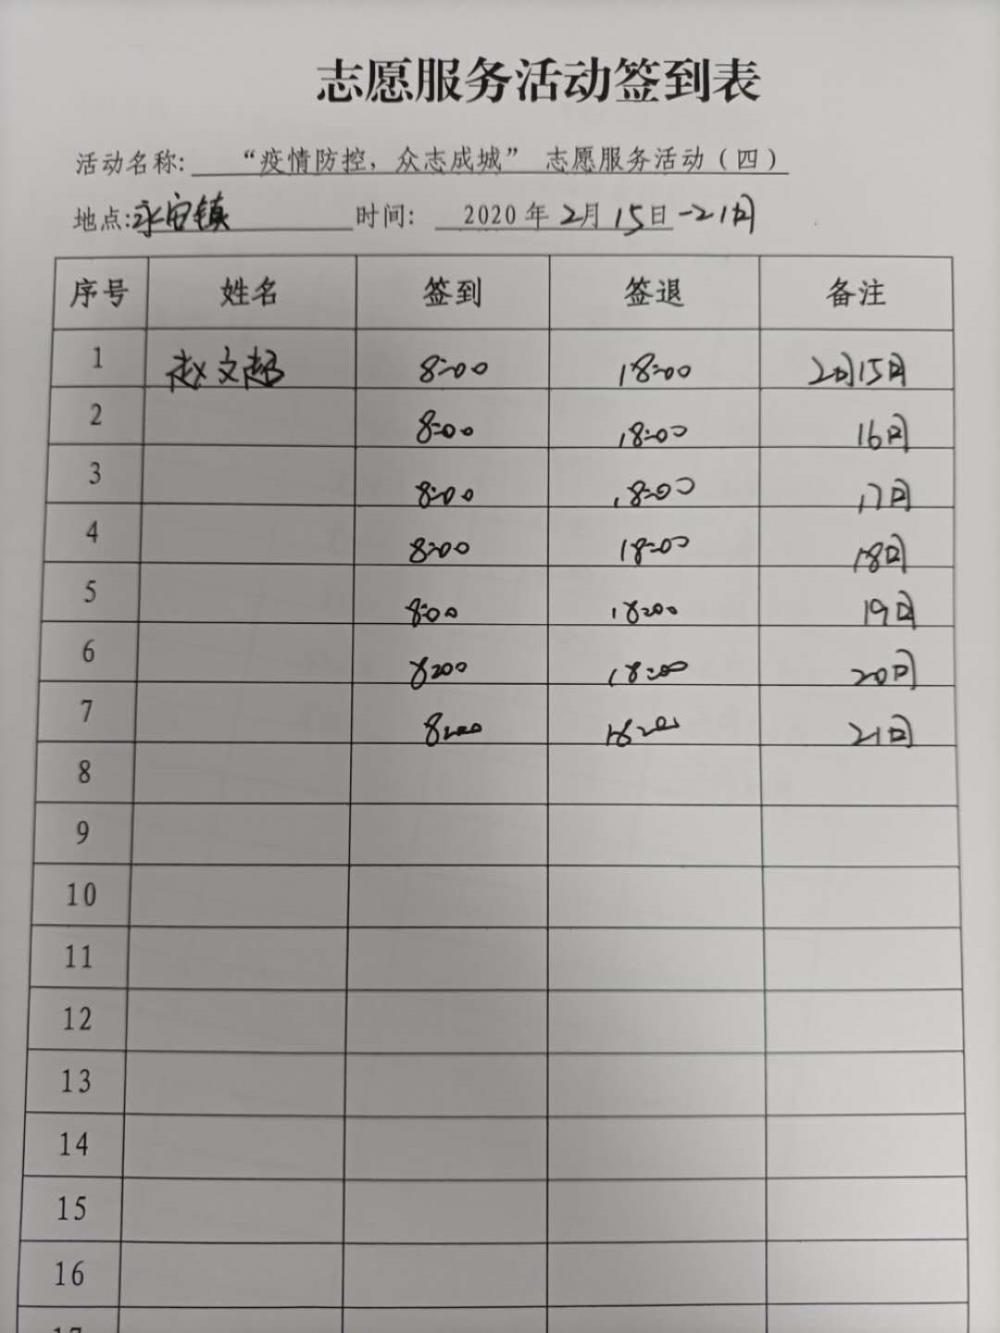 志愿服务活动签到表
活动名称: “疫情防控，众志成城” 志愿服务活动（四）
地点:永安镇 时间: 2020 年 2月 15日-21日
序号 姓名 签到 签退 备注
1 赵文超 8:00 18:00 2月15日
2 8:00 18:00 16日
3 8:00 18:00 17日
4 8:00 18:00 18日
5 8:00 18:00 19日
6 8:00 18:00 20日
7 8:00 18:00 21日
8
9
10
11
12
13
14
15
16
17